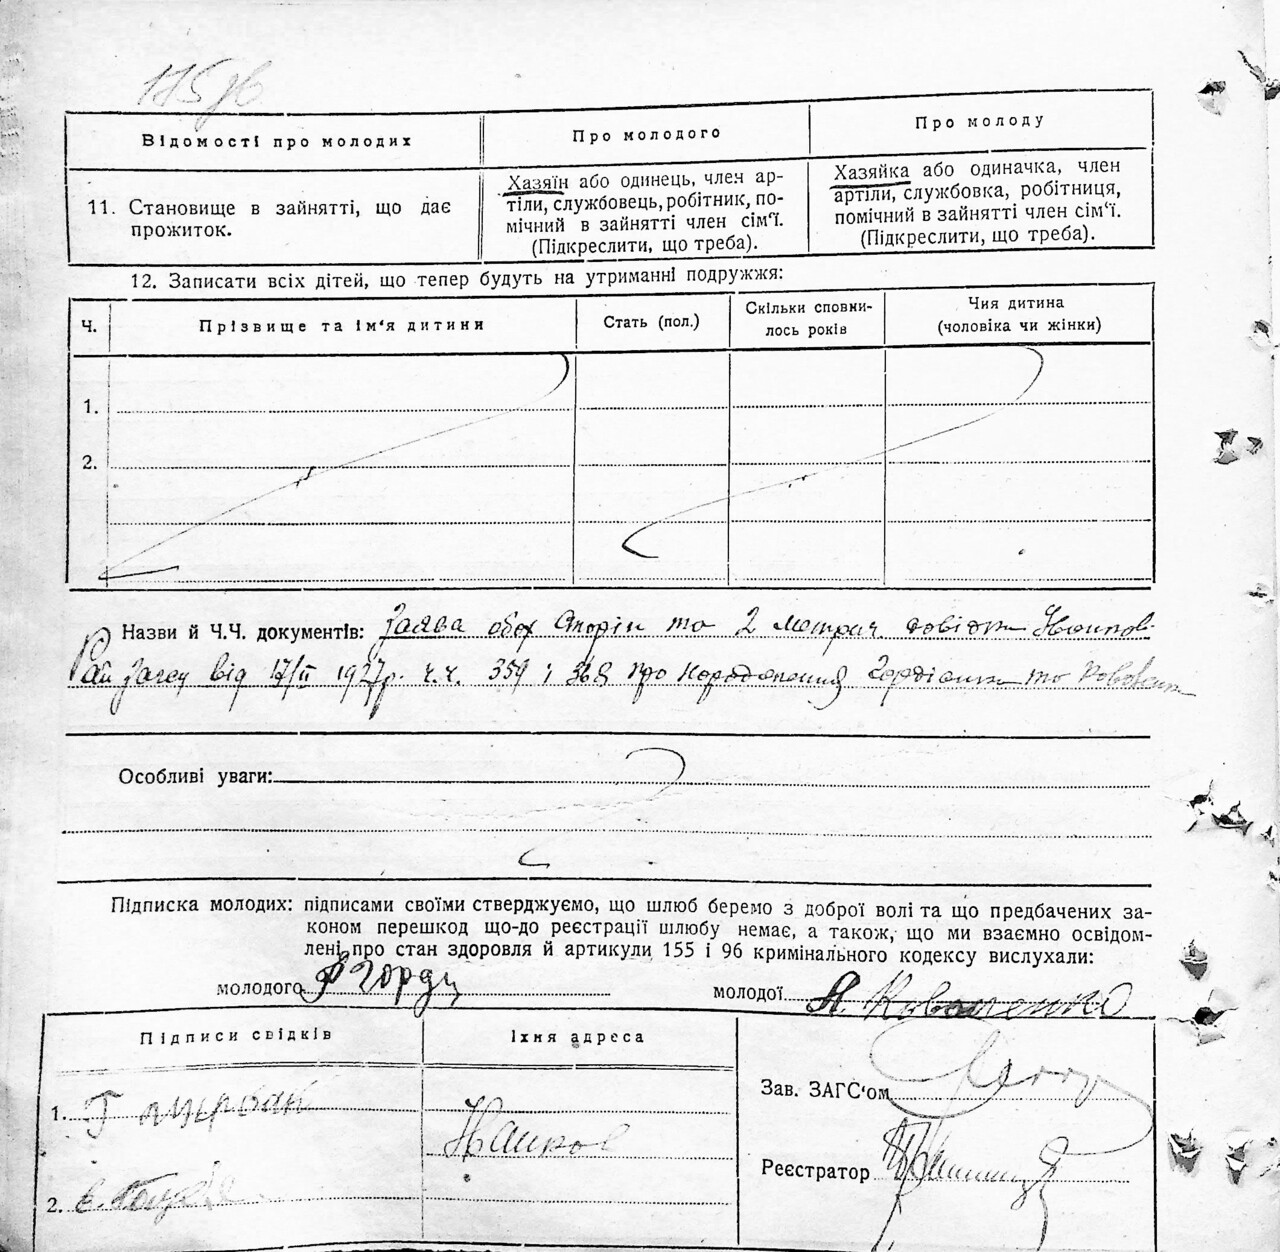 175
Відомості про молодих
Про молодого
Про молоду
11. Становище в зайнятті, що дає прожиток.
Хазяїн або одинець, член ар-
тіли, службовець, робітник, по-
мічний в зайнятті член сім'ї.
(Підкреслити, що треба).
Хазяйка або одиначка, член
артіли, службовка, робітниця,
помічний в зайнятті член сім'ї.
(Підкреслити, що треба).
12. Записати всіх дітей, що тепер будуть на утриманні подружжя:
Ч.
Прізвище та ім'я дитини
Стать (пол.)
Скільки сповни-
лось років
Чия дитина
(чоловіка чи жінки)
1.
2.
Назви й Ч.Ч. документів: Заява обох сторін та 2
Рай Загсу від 17/II 1927р. ч.ч. 359 і 368 про народження та
Особливі уваги:
Підписка молодих: підписами своїми стверджуємо, що шлюб беремо з доброї волі та що предбачених за-
коном перешкод що-до реєстрації шлюбу немає, а також, що ми взаємно освідом-
лені про стан здоровля й артикули 155 і 96 кримінального кодексу вислухали:
молодого
молодої А. Коваленко
Підписи свідків
Їхня адреса
1.
2.
Зав. ЗАГС'ом
Реєстратор